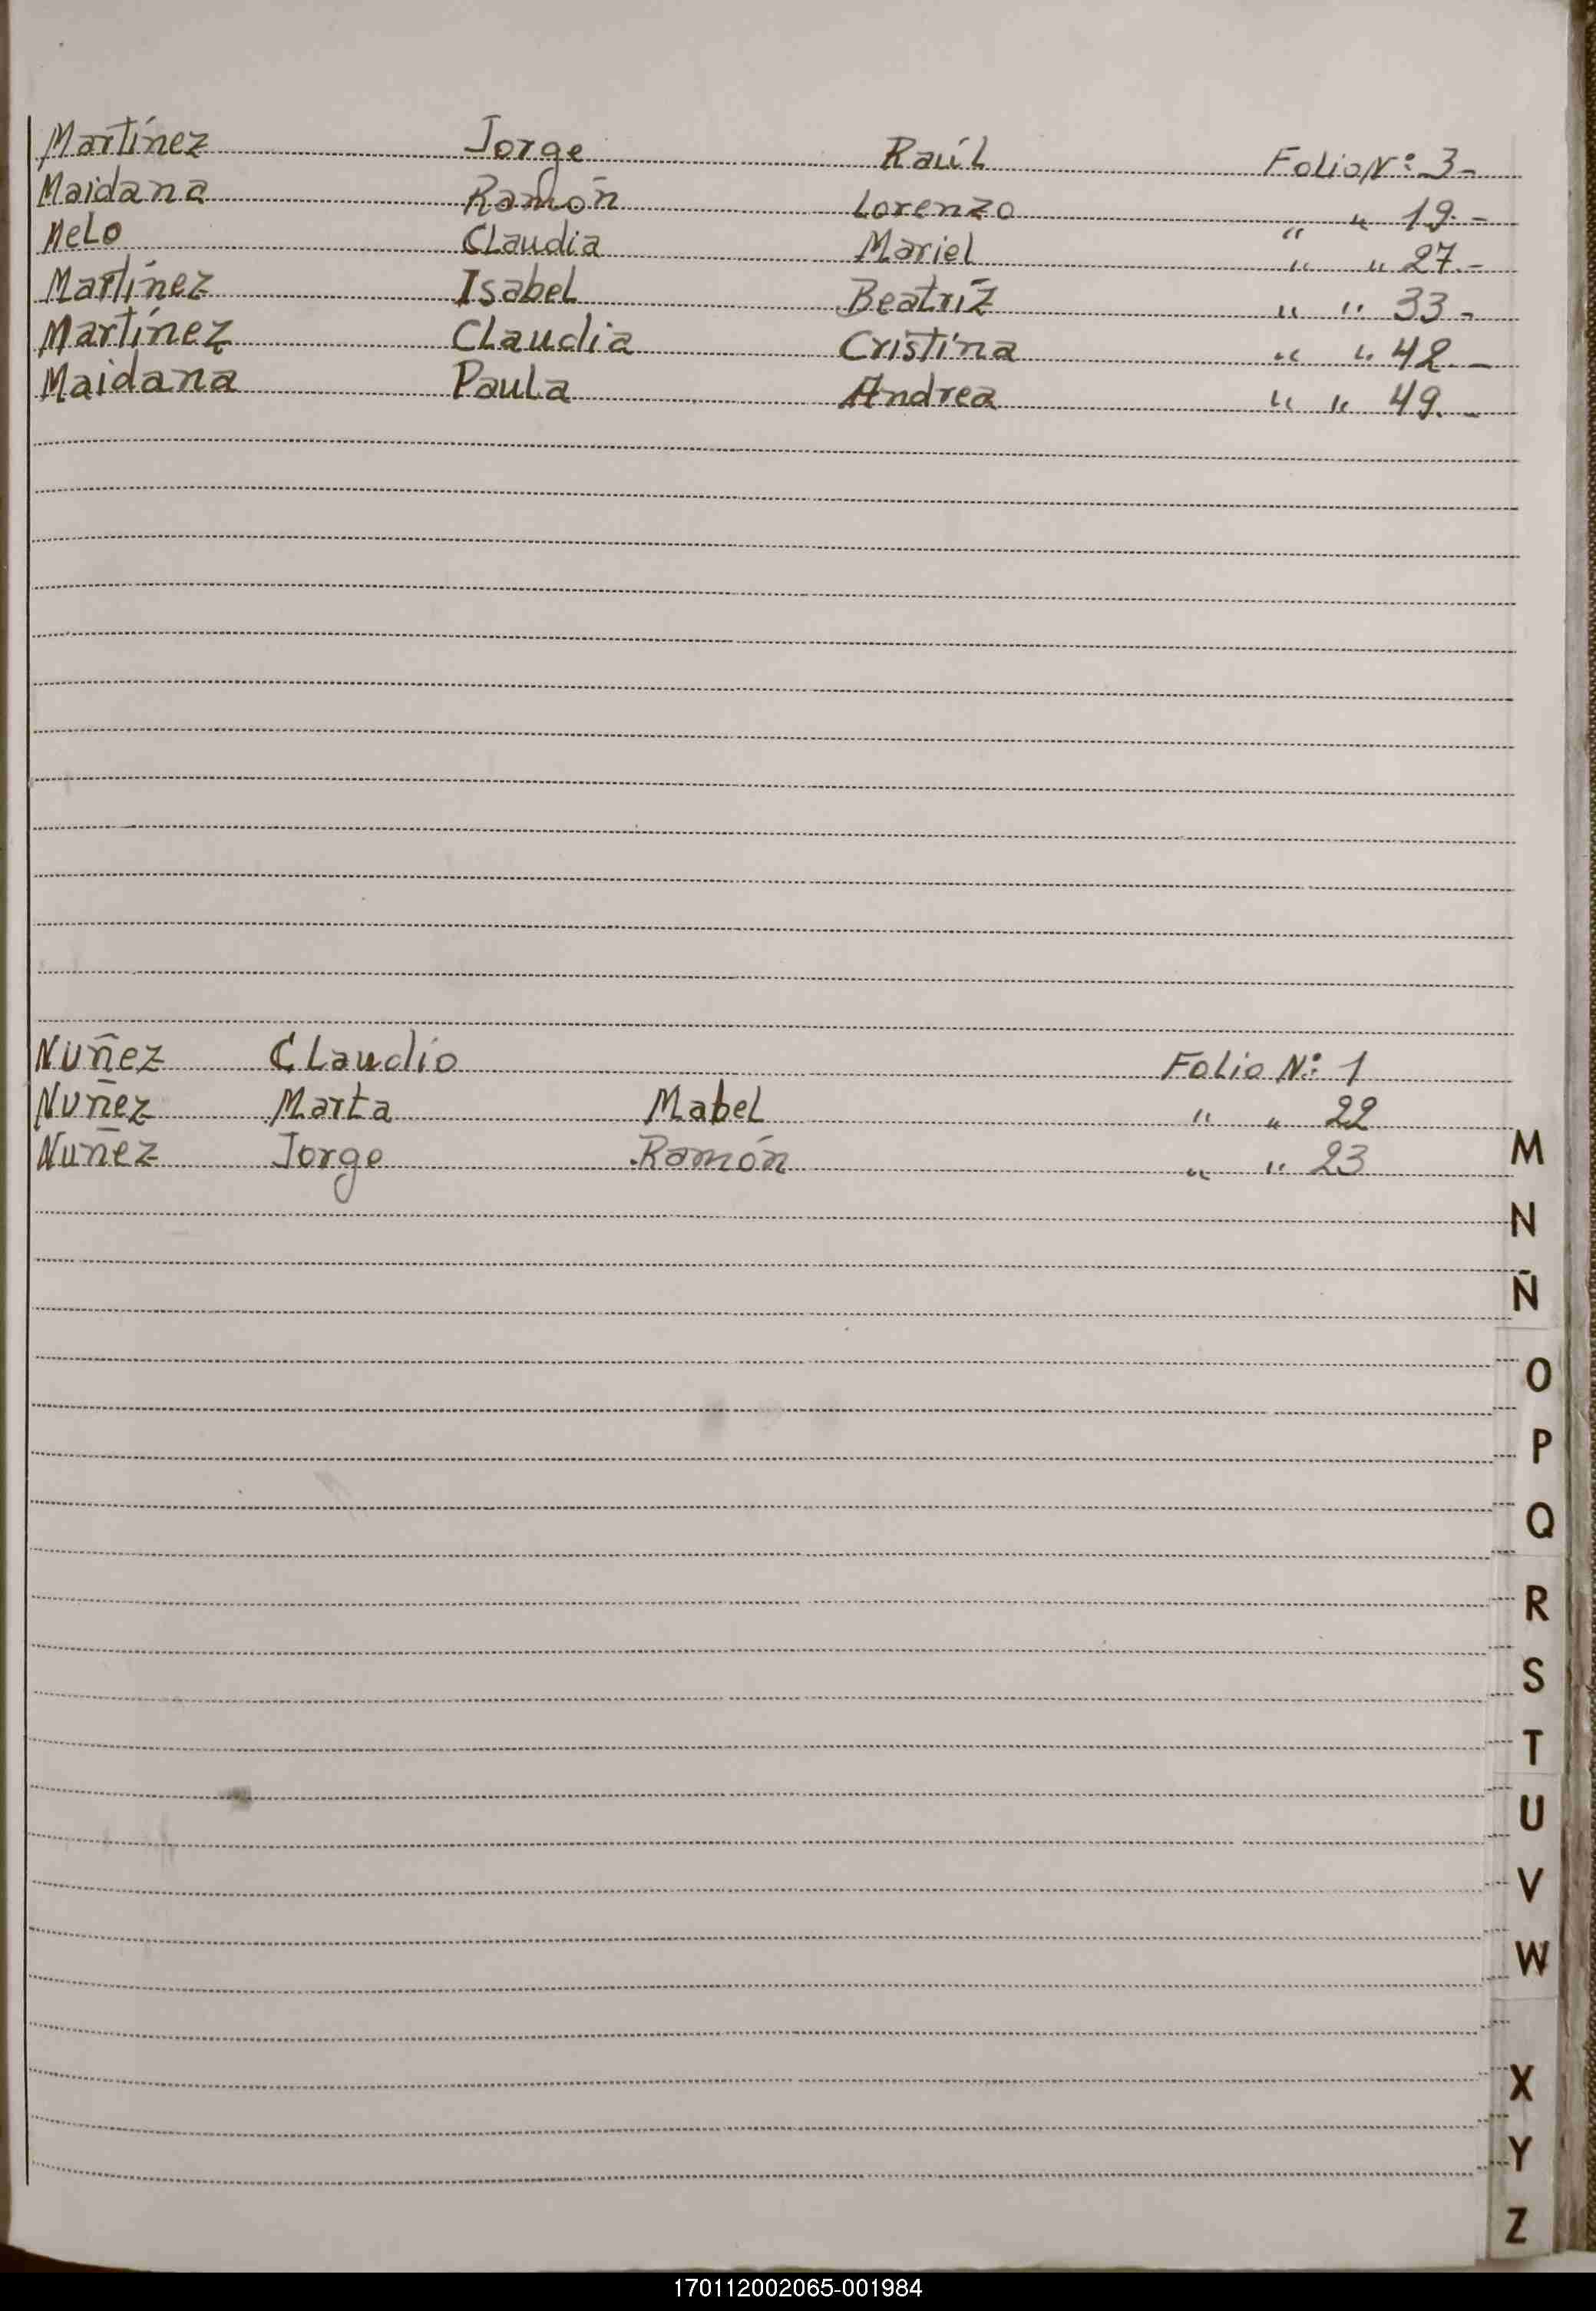 Martínez Jorge Raúl Folio Nº: 3-
Maidana Ramón Lorenzo " " 19.-
Melo Claudia Mariel " " 27.-
Martínez Isabel Beatríz " " 33-
Martínez Claudia Cristina " " 42.-
Maidana Paula Andrea " " 49.-
Nuñez Claudio Folio Nº: 1
Nuñez Marta Mabel " " 22
Nuñez Jorge Ramón " " 23
M
N
Ñ
O
P
Q
R
S
T
U
V
W
X
Y
Z
170112002065-001984